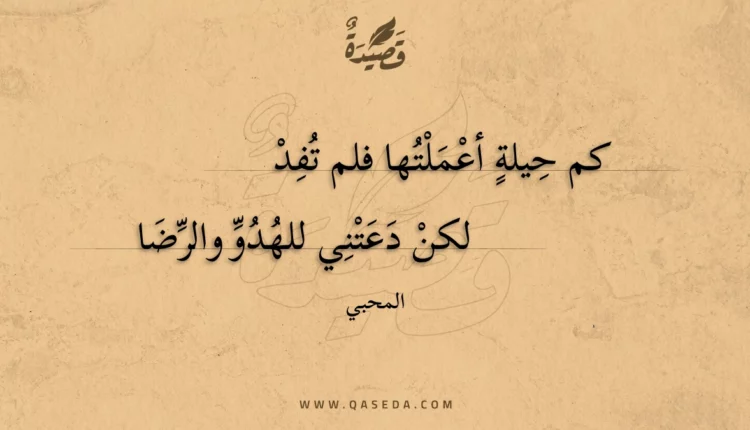 قَصِيْدَةٌ
كم حِيلةٍ أعْمَلْتُها فلم تُفِدْ
لكنْ دَعَتْنِي للهُدُوِّ والرِّضَا
المحبي
WWW.QASEDA.COM